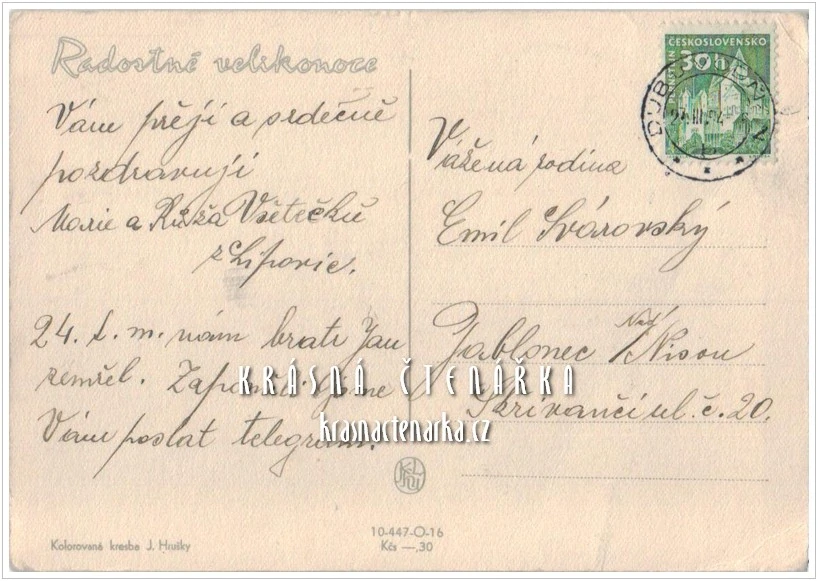 Radostné velikonoce
Vám přejí a srdečně
pozdravují
Marie a Růža Všetečků
z Lipovic.
24. t. m. nám bratr Jan
zemřel. Zapomněli jsme
Vám poslat telegram.
ČESKOSLOVENSKO
30h
Vážená rodina
Emil Svárovský
Jablonec Nad/Nisou
Skřivančí ul. č. 20.
KRÁSNÁ ČTENÁŘKA
krasnactenarka.cz
Kolorovaná kresba J. Hrušky
10-447-O-16
Kčs —,30